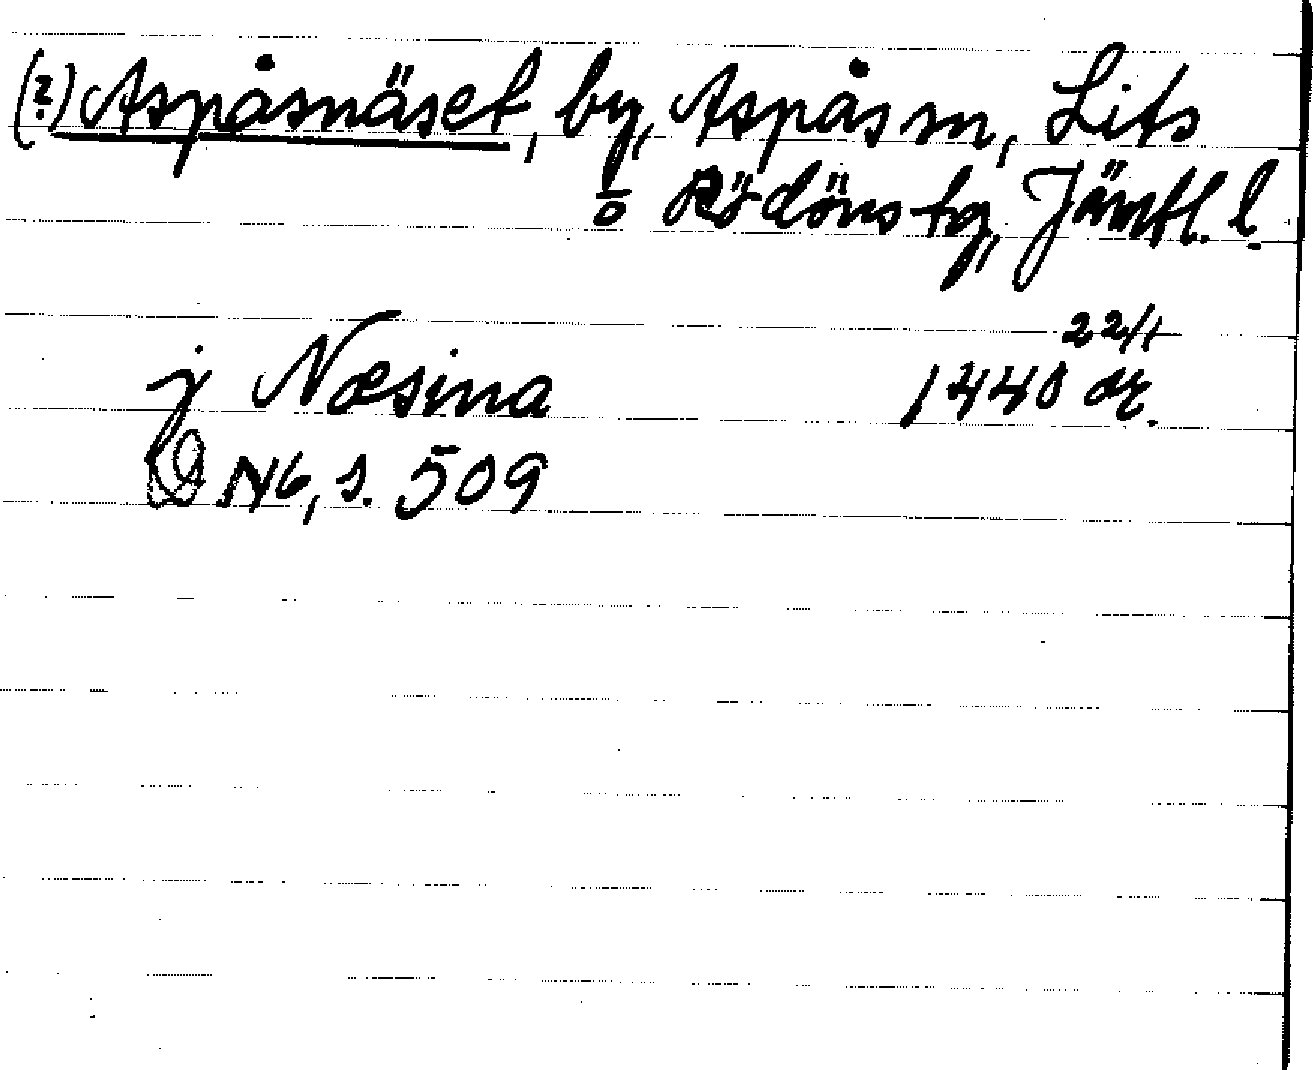 (?) Aspåsnäset, by, Aspås sn, Lits
o Rödöns tg, Jämtl. l.
j Næsina 1440 22/1 or.
DN 6, s. 509